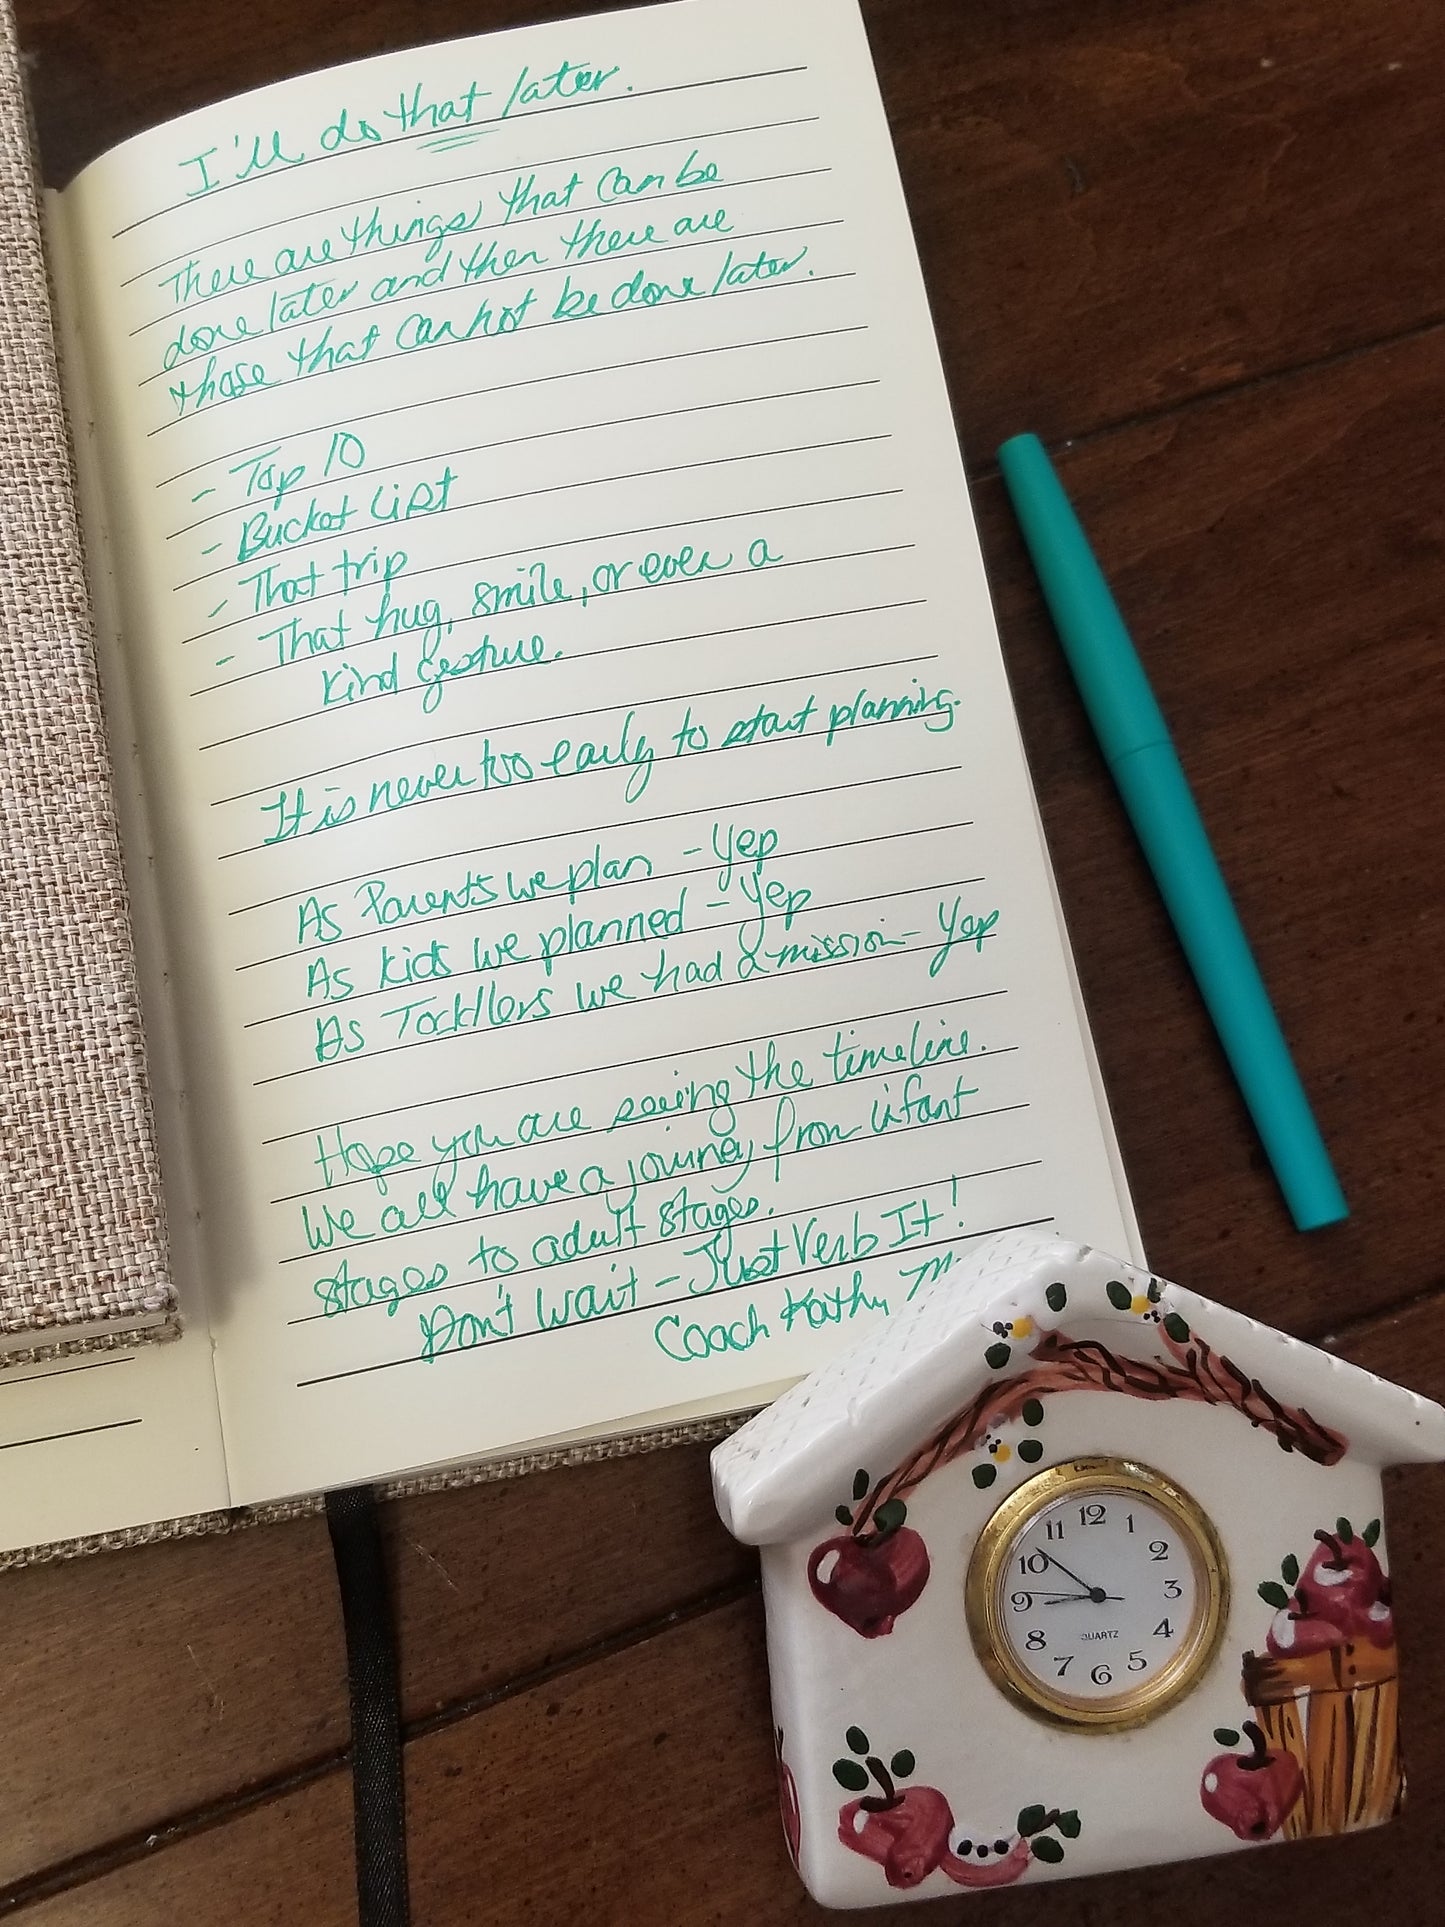 I'll do that later.
There are things that can be
done later and then there are
those that cannot be done later.
- Top 10
- Bucket List
- That trip
- That hug, smile, or even a
Kind gesture.
It is never too early to start planning.
As Parents we plan - Yep
As Kids we planned - Yep
As Toddlers we had a mission - Yep
Hope you are seeing the timeline.
We all have a journey from infant
stages to adult stages.
Don't Wait - Just Verb It!
Coach Kathy
12
1
2
3
4
5
6
7
8
9
10
11
QUARTZ